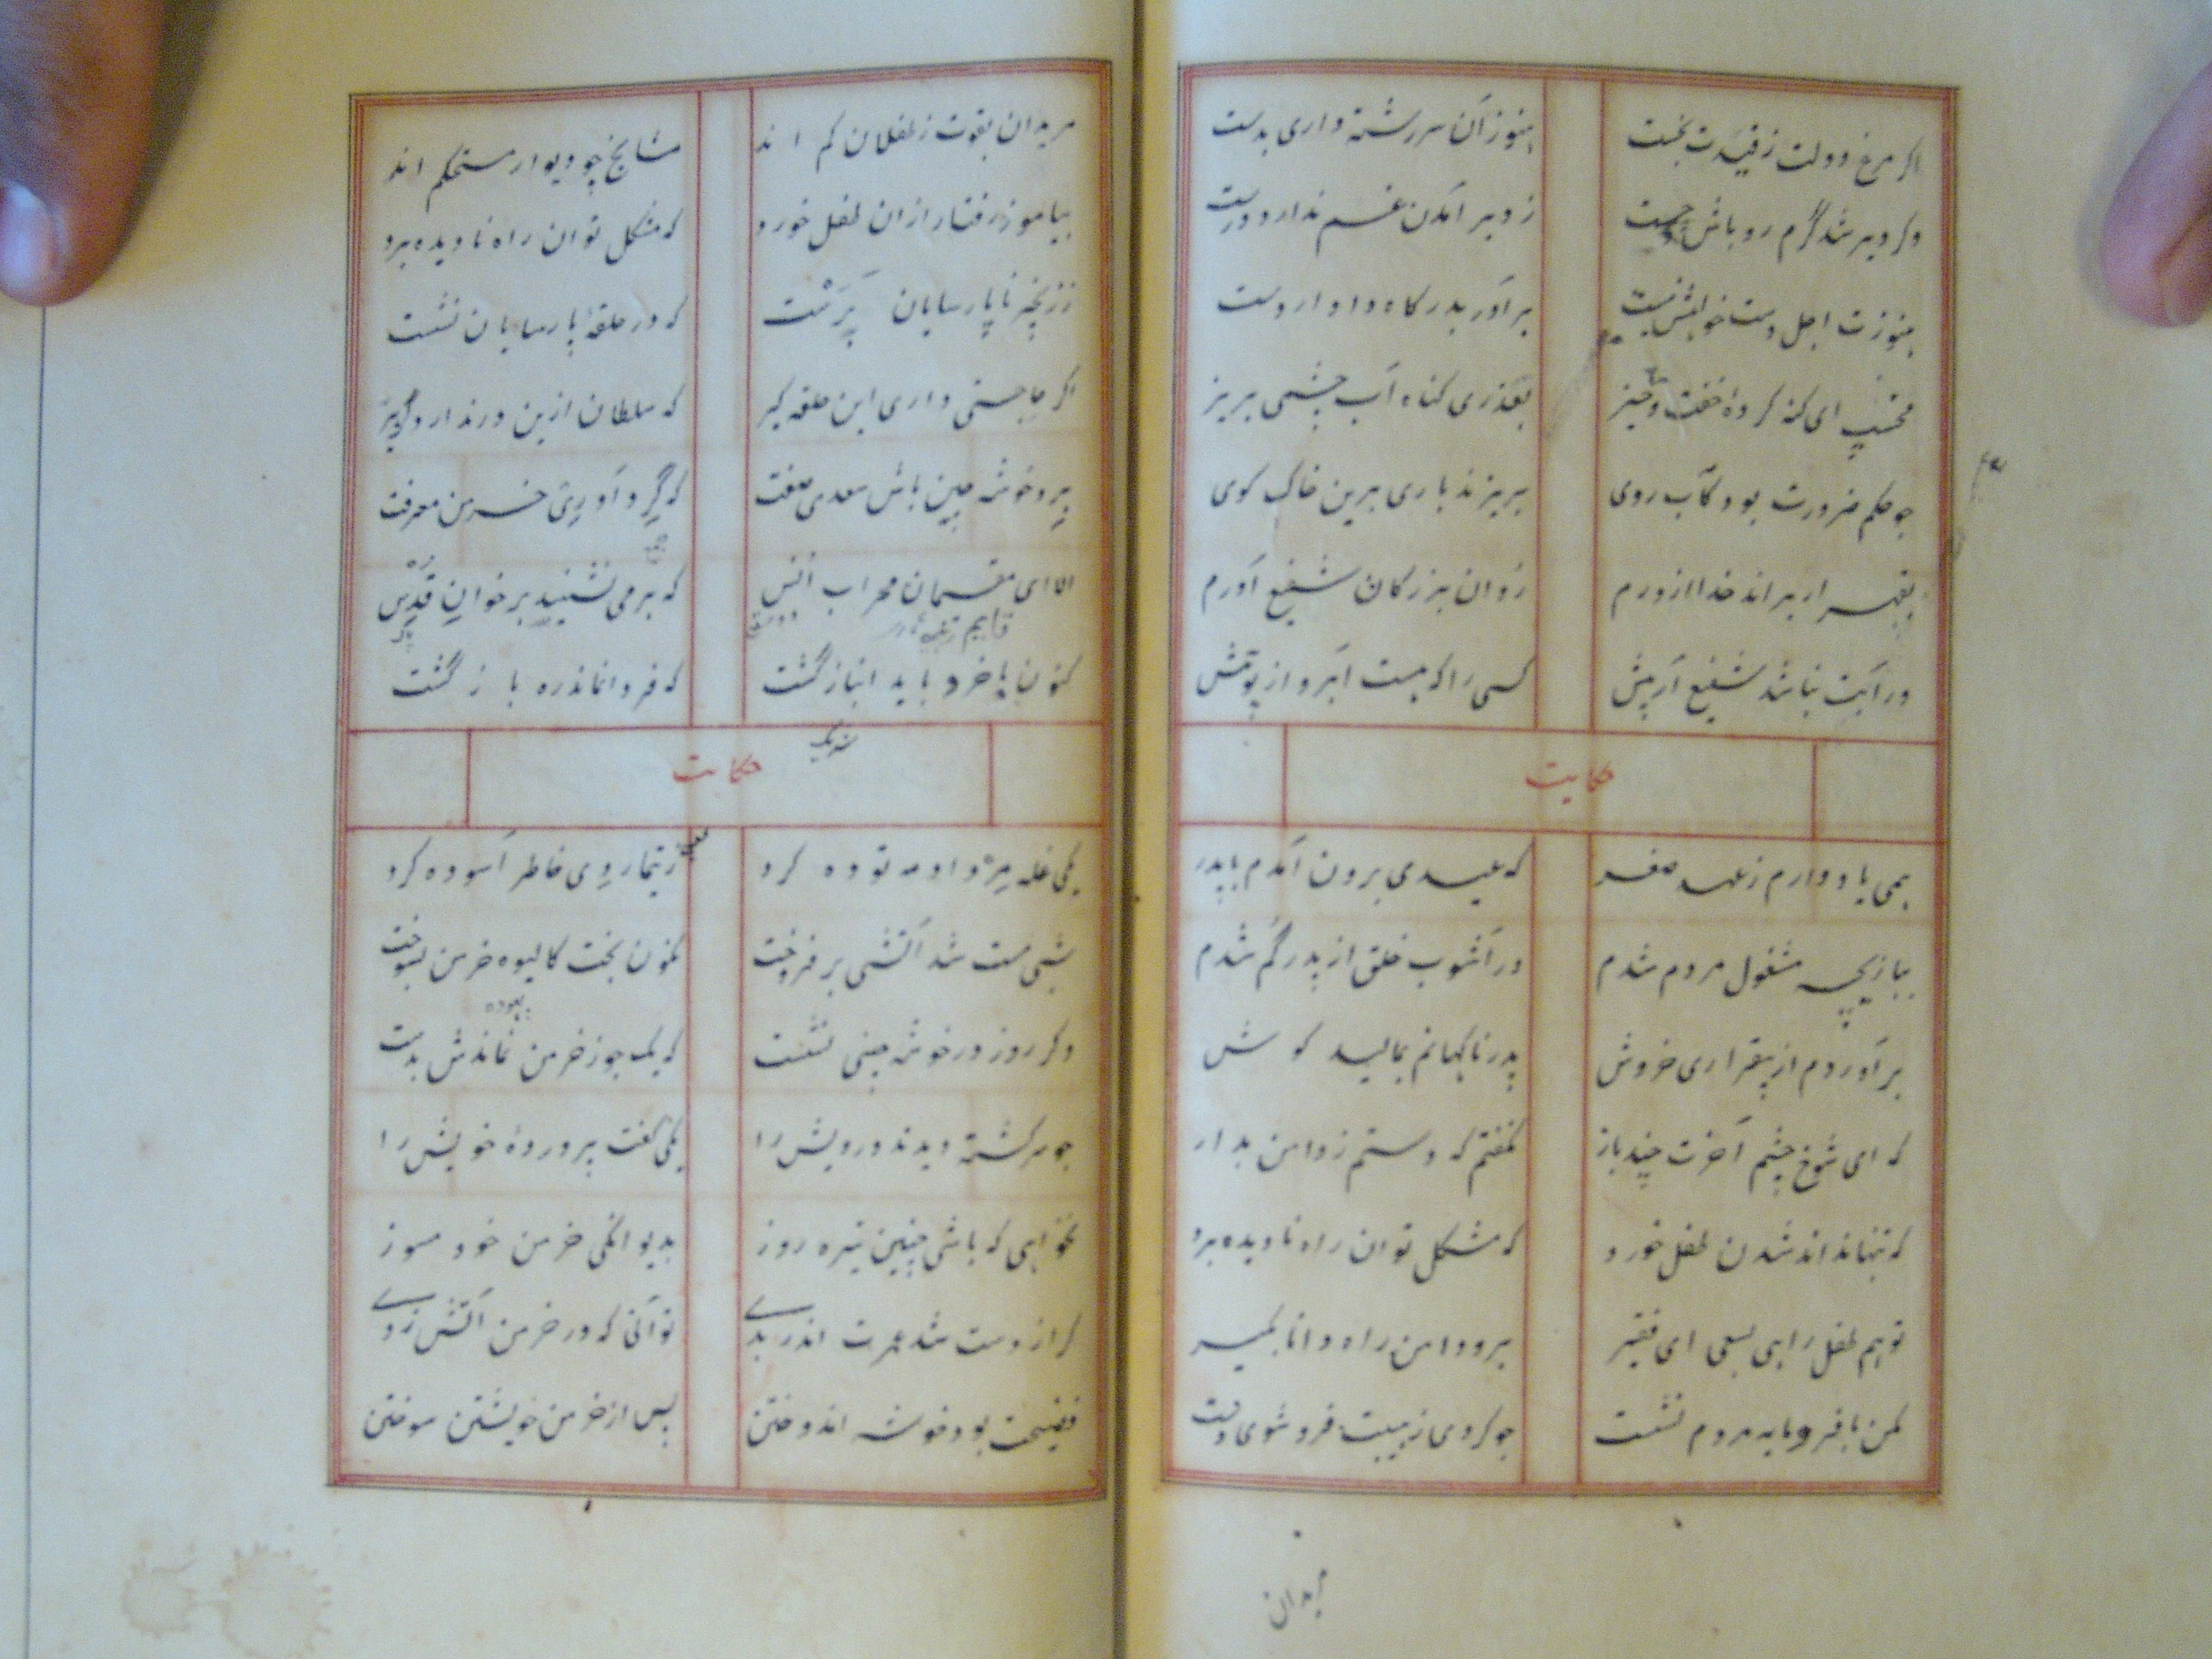 اکر مرغ دولت ز قیدت بجست هنوز آن سر رشته داری بدست
وکر دیر شد گرم رو باش و چست ز دیر آمدن غم ندارد درست
هنوزت اجل دست خواهش نبست برآور بدرکاه دادار دست
مخسب ای کنه کرده خفته خیز بعذر کناه آب چشمی بریز
چو حکم ضرورت بود کآب روی بریزند باری برین خاک کوی
بقهر ار براند خدا از درم روان بزرکان شفیع آورم
ور آبت نباشد شفیع آر پیش کسی را که هست آبرو از تو بیش
حکایت
همی یاد دارم ز عهد صغر که عیدی برون آمدم با پدر
ببازیچه مشغول مردم شدم در آشوب خلق از پدر گم شدم
برآوردم از بیقراری خروش پدر ناکهانم بمالید کوش
که ای شوخ چشم آخرت چند بار نکفتم که دستم ز دامن بدار
که تنها نداند شدن طفل خورد که مشکل توان راه نادیده برد
تو هم طفل راهی بسعی ای فقیر برو دامن راه دانا بکیر
مکن با فرومایه مردم نشست چو کردی ز هیبت فرو شوی دست
مریدان
مریدان بقوت ز طفلان کم اند مشایخ چو دیوار مستحکم اند
بیاموز رفتار از ان طفل خورد که مشکل توان راه نادیده برد
ز زنجیر ناپارسایان برست که در حلقهٔ پارسایان نشست
اکر حاجتی داری این حلقه کیر که سلطان ازین در ندارد کزیر
برو خوشه چین باش سعدی صفت که گرد آوری خرمن معرفت
الا ای مقیمان محراب انس که برمی نشینید بر خوان قدس
کنون با خرد باید انباز گشت که فردا نماند ره باز گشت
شریک
حکایت
یکی غله مرداد مه توده کرد ز تیمار دی خاطر آسوده کرد
شبی مست شد آتشی برفروخت نکون بخت کالیوه خرمن بسوخت
بیهوده
دکر روز در خوشه چینی نشست که یک جو ز خرمن نماندش بدست
چو سرکشته دیدند درویش را یکی کفت پروردهٔ خویش را
نخواهی که باشی چنین تیره روز بدیوانکی خرمن خود مسوز
کر از دست شد عمرت اندر بدی تو آنی که در خرمن آتش زدی
فضیحت بود خوشه اندوختن پس از خرمن خویشتن سوختن